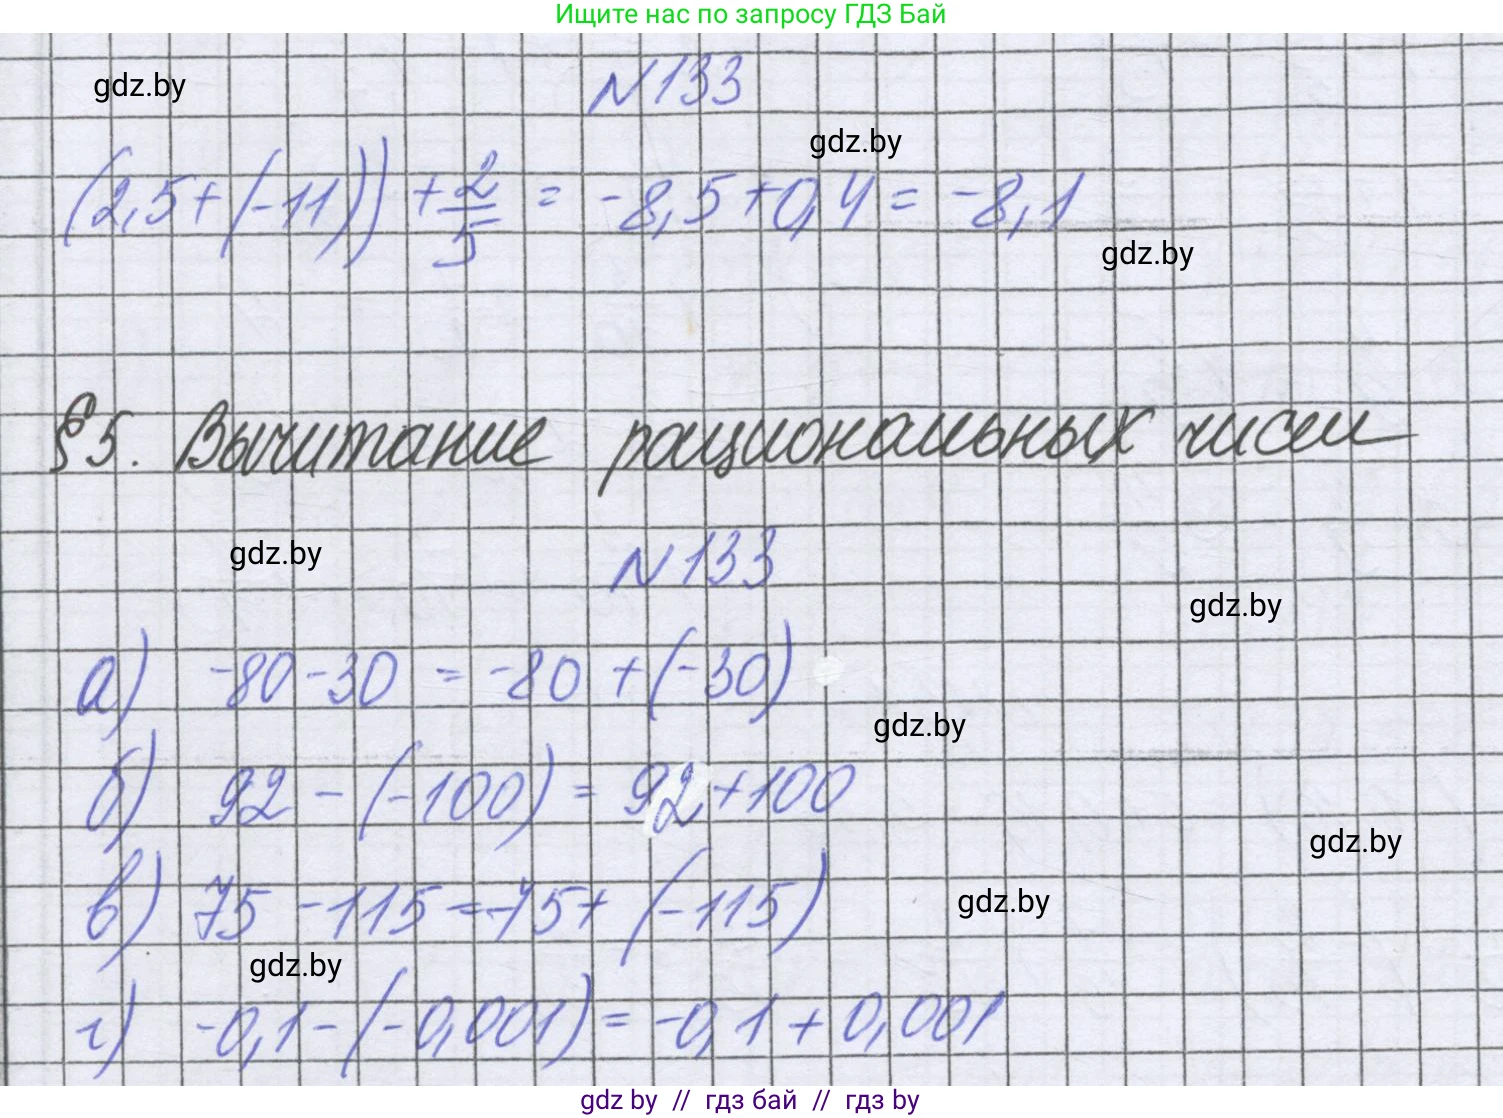 Ищите нас по запросу ГДЗ Бай
gdz.by
N133
gdz.by
(2,5+(-11))+2/5 = -8,5+0,4= -8,1
gdz.by
§5. Вычитание рациональных чисел
gdz.by
N133
gdz.by
а) -80-30 = -80 +(-30)
gdz.by
б) 92 - (-100) = 92+100
gdz.by
в) 75 -115=75+ (-115)
gdz.by
gdz.by
г) -0,1-(-0,001)=-0,1+0,001
gdz by // гдз бай // гдз by